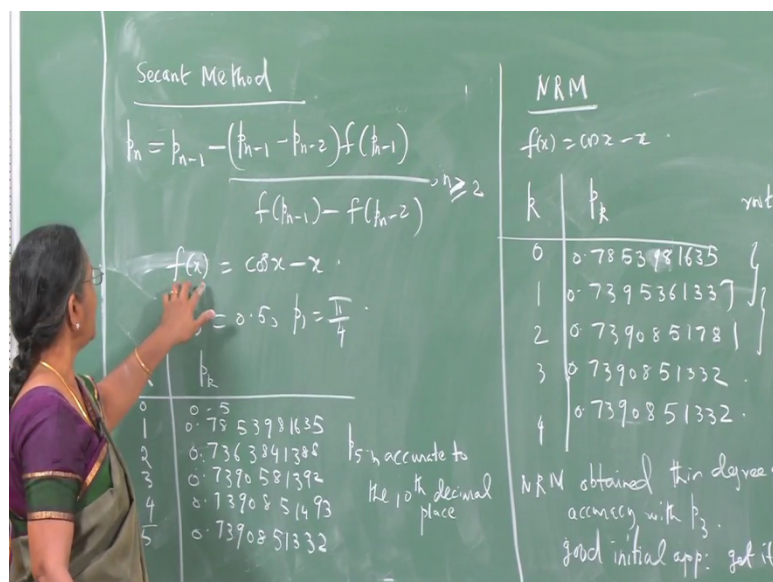 Secant Method
pₙ = pₙ₋₁ − (pₙ₋₁ − pₙ₋₂) f(pₙ₋₁) / f(pₙ₋₁) − f(pₙ₋₂) , n ≥ 2
f(x) = cos x − x .
= 0.5, p₁ = π/4 .
pₖ
0 0.5
1 0.7853981635
2 0.7363841388
3 0.7390581392
4 0.7390851493
5 0.7390851332
p₅ is accurate to
the 10th decimal
place
NRM
f(x) = cos x − x .
k pₖ
0 0.7853981635
1 0.7395361337
2 0.7390851781
3 0.7390851332 .
4 0.7390851332 .
NRM obtained this degree
accuracy with p₃.
good initial app: get it